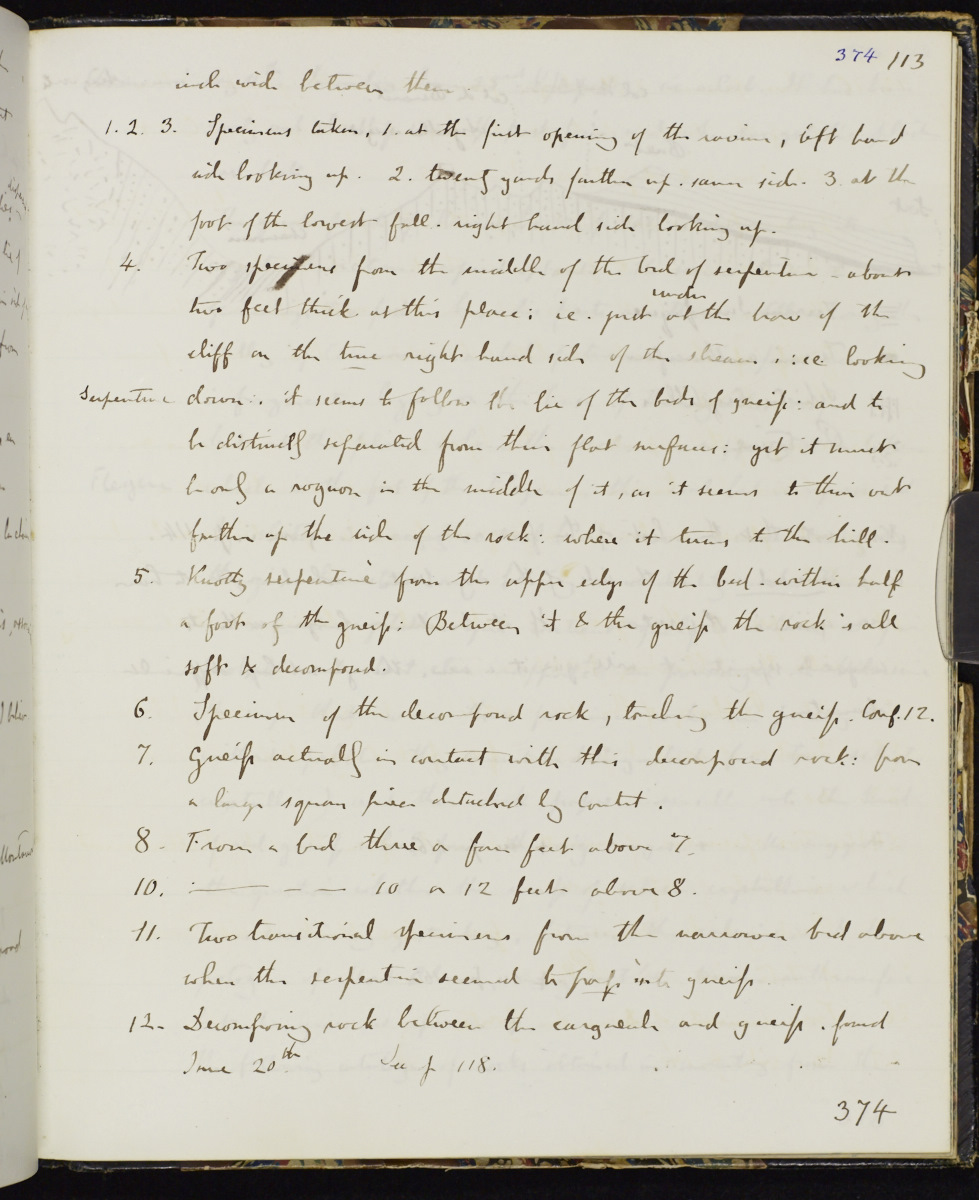 374 113
inch wide between them.
1. 2. 3. Specimens taken, 1. at the first opening of the ravine, left hand
side looking up. 2. twenty yards further up. same side. 3. at the
foot of the lowest fall. right hand side looking up.
4. Two specimens from the middle of the bed of serpentine - about
two feet thick at this place: ie. just at the brow of the
under
cliff on the true right hand side of the stream: ie looking
Serpentine down: it seems to follow the lie of the beds of gneiss: and to
be distinctly separated from their flat surfaces: yet it must
be only a rognon in the middle of it, as it seems to thin out
further up the side of the rock: where it turns to the hill.
5. Knotty serpentine from the upper edge of the bed. within half
a foot of the gneiss: Between it & the gneiss the rock is all
soft & decomposed.
6. Specimen of the decomposed rock, touching the gneiss. Conf. 12.
7. Gneiss actually in contact with this decomposed rock: from
a large square piece detached by Coutet.
8. From a bed three or four feet above 7.
10. ——— — — 10 or 12 feet above 8.
11. Two transitional specimens from the narrower bed above
when the serpentine seemed to pass into gneiss.
12. Decomposing rock between the cargneule and gneiss. found
June 20th. See p 118.
374